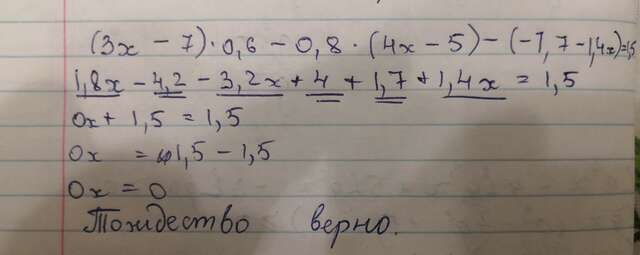 (3x - 7) · 0,6 - 0,8 · (4x - 5) - (-1,7 - 1,4x) = 1,5
1,8x - 4,2 - 3,2x + 4 + 1,7 + 1,4x = 1,5
0x + 1,5 = 1,5
0x = 1,5 - 1,5
0x = 0
Тождество верно.